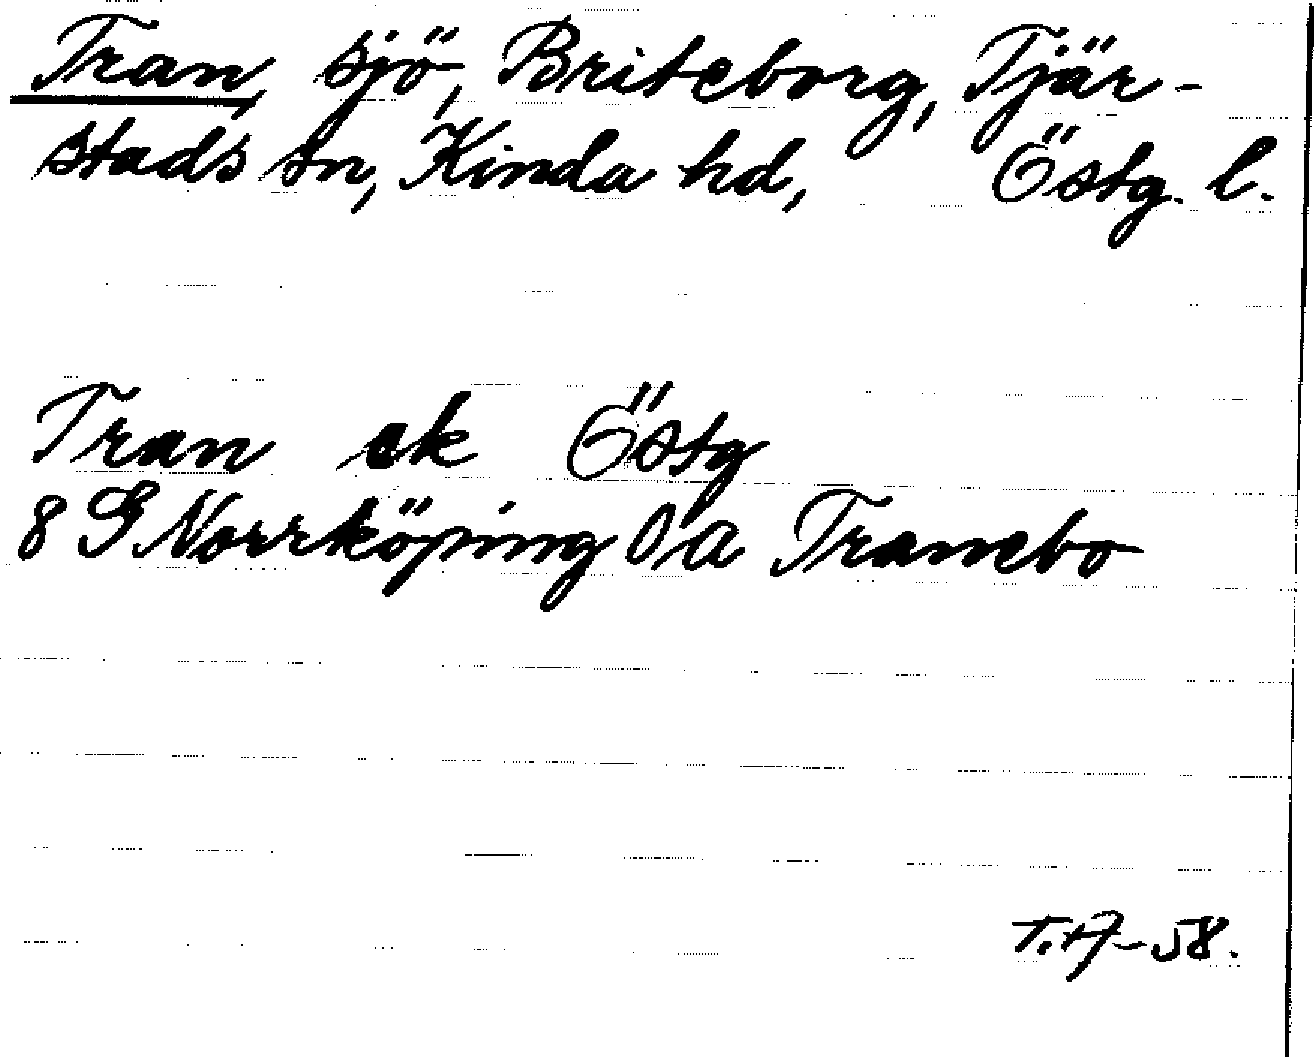 Tran, sjö, Briteborg, Tjär-
stads sn, Kinda hd, Östg. l.
Tran ek Östg
8 G Norrköping 0/a Tranebo
T.A-58.